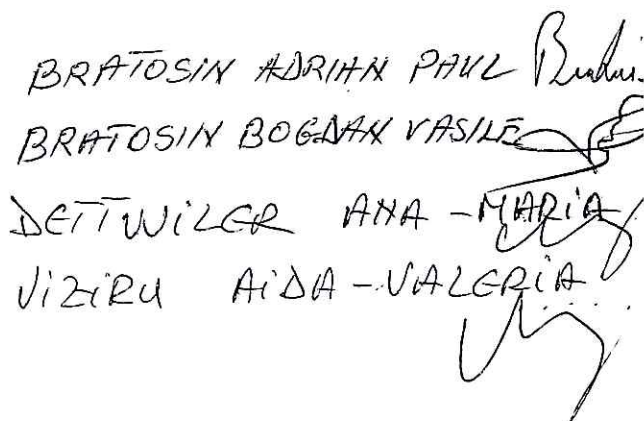 BRATOSIN ADRIAN PAUL
BRATOSIN BOGDAN VASILE
DETTWiLER ANA-MARiA
ViZiRU AiDA-VALERiA